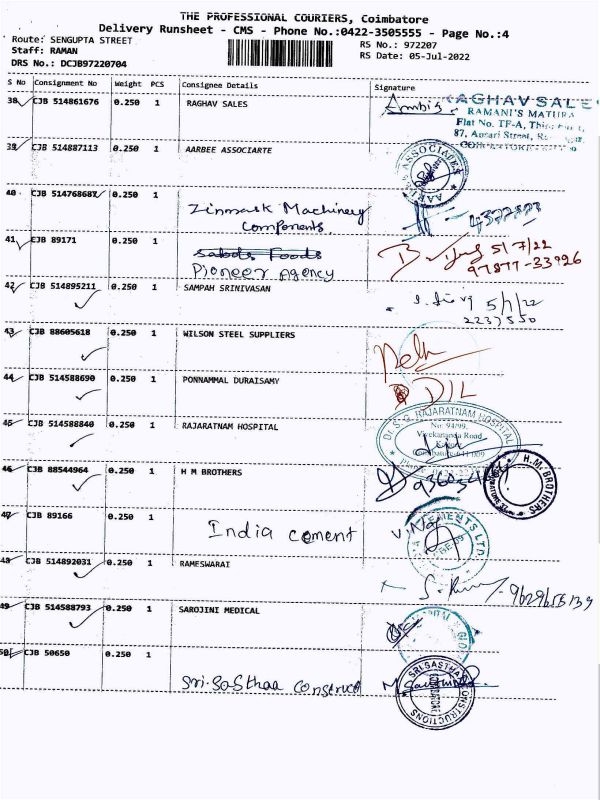 THE PROFESSIONAL COURIERS, Coimbatore
Delivery Runsheet - CMS - Phone No.:0422-3505555 - Page No.:4
Route: SENGUPTA STREET
Staff: RAMAN
DRS No.: DCJB97220704
RS No.: 972207
RS Date: 05-Jul-2022
S No Consignment No Weight PCS Consignee Details Signature
38 CJB 514861676 0.250 1 RAGHAV SALES
RAGHAV SALES
RAMANI'S MATURA
Flat No. TF-A,
87, Ansari Street,
39 CJB 514887113 0.250 1 AARBEE ASSOCIARTE
ASSOCIATES
40 CJB 514768687 0.250 1
Zinmask Machinery
Components
41 CJB 89171 0.250 1
Sabols Foods
Pioneer Agency
5/7/22
97877-33926
42 CJB 514895211 0.250 1 SAMPAH SRINIVASAN
5/7/22
2237550
43 CJB 88605618 0.250 1 WILSON STEEL SUPPLIERS
44 CJB 514588690 0.250 1 PONNAMMAL DURAISAMY
D/L
45 CJB 514588840 0.250 1 RAJARATNAM HOSPITAL
Dr. S. G. RAJARATNAM HOSPITAL
No: 94/99,
Vivekananda Road
46 CJB 88544964 0.250 1 H M BROTHERS
H.M. BROTHERS
47 CJB 89166 0.250 1
India cement
48 CJB 514892031 0.250 1 RAMESWARAI
9629655139
49 CJB 514588793 0.250 1 SAROJINI MEDICAL
50 CJB 50650 0.250 1
Sri-SaSthaa Construct
SRI SASTHAA CONSTRUCTIONS